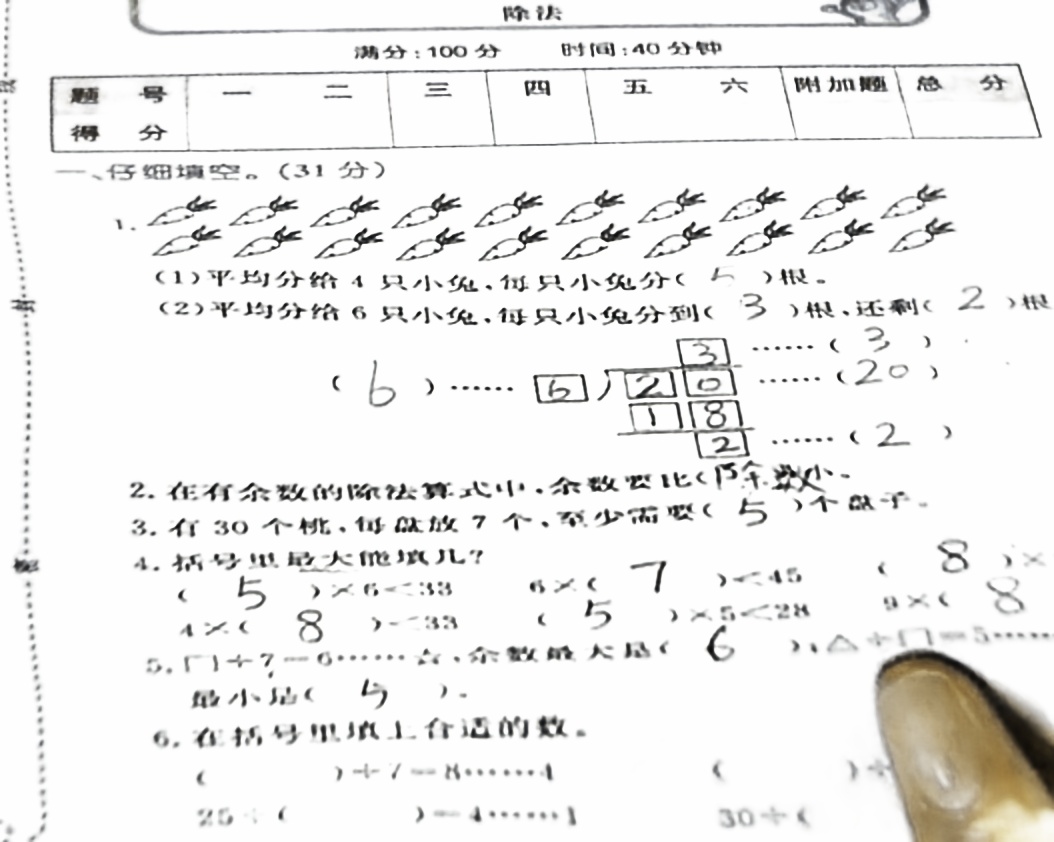 除法
满分:100分 时间:40分钟
题号 一 二 三 四 五 六 附加题 总分
得分
一、仔细填空。(31分)
1.
(1)平均分给4只小兔,每只小兔分( 5 )根。
(2)平均分给6只小兔,每只小兔分到( 3 )根,还剩( 2 )根
3 ……( 3 )
( 6 )…… 6 ) 2 0 ……( 20 )
1 8
2 ……( 2 )
2. 在有余数的除法算式中,余数要比(除数)小。
3. 有30个桃,每盘放7个,至少需要( 5 )个盘子。
4. 括号里最大能填几?
( 5 )×6<33 6×( 7 )<45 ( 8 )×
4×( 8 )<33 ( 5 )×5<28 9×( 8
5. □÷7=6……☆,余数最大是( 6 );△÷□=5……
最小是( 5 )。
6. 在括号里填上合适的数。
( )÷7=8……4 ( )÷
25÷( )=4……1 30÷(